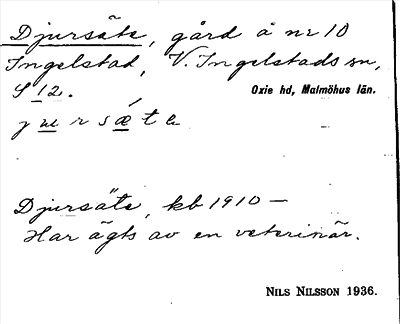 Djursäte, gård å nr 10
Ingelstad, V. Ingelstads sn,
S 12.
Oxie hd, Malmöhus län.
jursæ´te
Djursäte, kb 1910 —
Har ägts av en veterinär.
NILS NILSSON 1936.